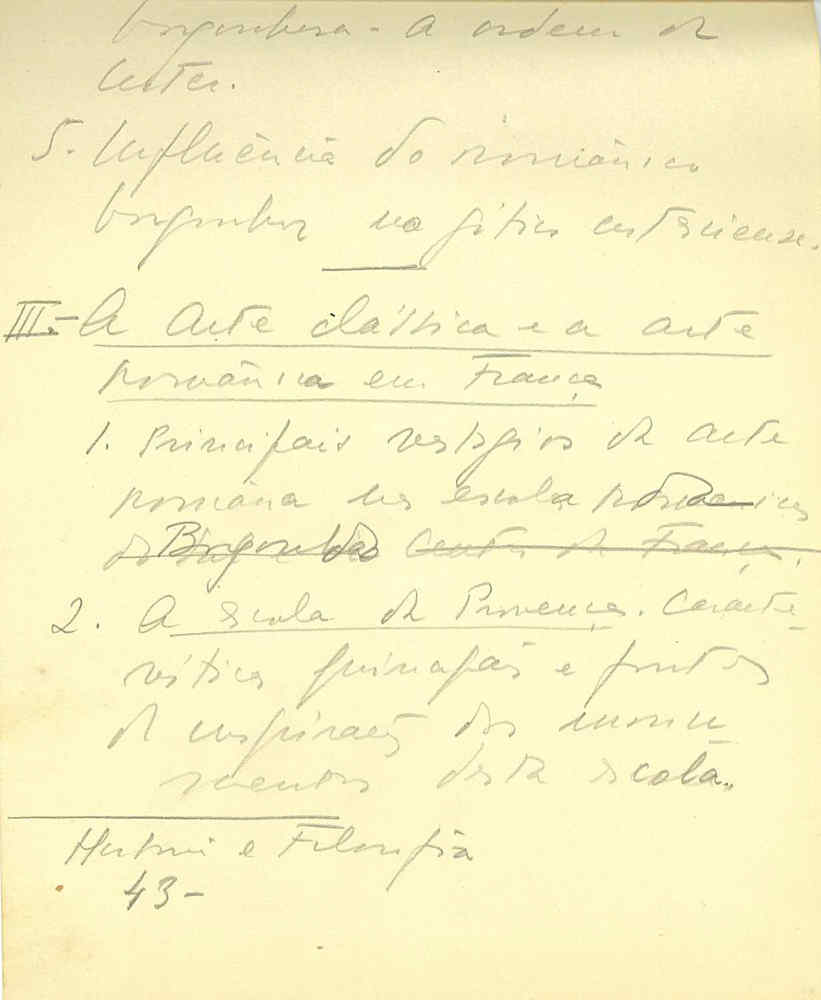 borgonhesa - A ordem de
Cister.
5. Influência do românico
borgonhez no gótico cisterciense.
III.- A arte clássica e a arte
românica em França
1. Principais vestígios da arte
romana na escola românica
da Borgonha do Centro da França.
2. A escola da Provença. Caracte-
rísticas principais e fontes
de inspiração dos monu-
mentos desta escola.
História e Filosofia
43-